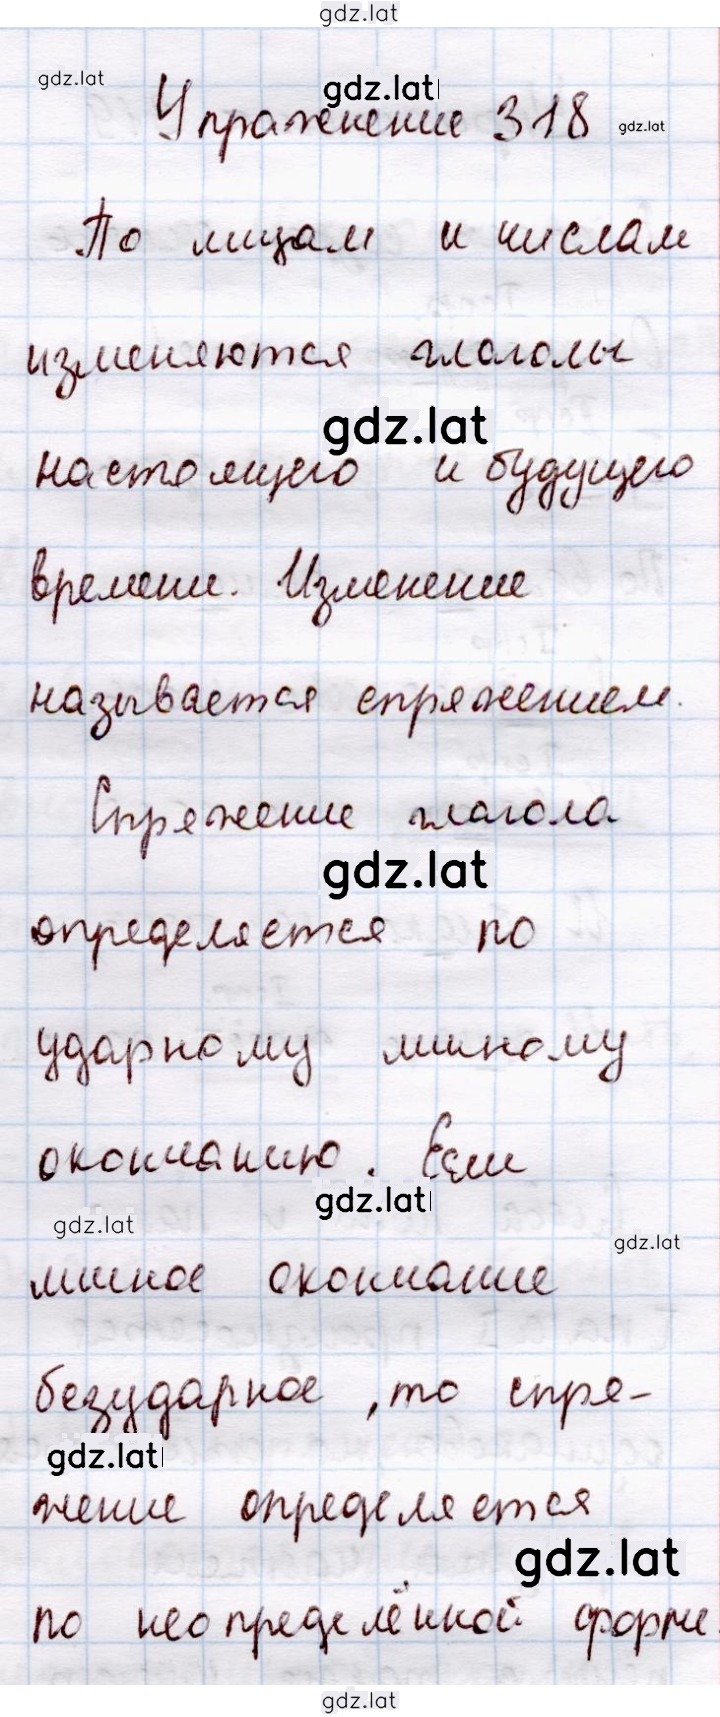 gdz.lat
gdz.lat
gdz.lat
Упражнение 318
gdz.lat
По лицам и числам
изменяются глаголы
gdz.lat
настоящего и будущего
времени. Изменение
называется спряжением.
Спряжение глагола
gdz.lat
определяется по
ударному личному
окончанию. Если
gdz.lat
gdz.lat
gdz.lat
личное окончание
безударное, то спря-
gdz.lat
жение определяется
gdz.lat
по неопределённой форме.
gdz.lat